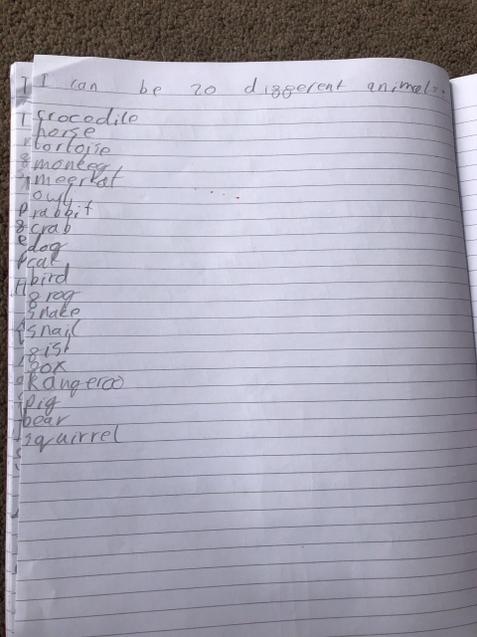 I can be 20 different animals.
crocodile
horse
tortoise
monkey
meerkat
owl
rabbit
crab
dog
cat
bird
frog
snake
snail
fish
fox
kangeroo
pig
bear
squirrel